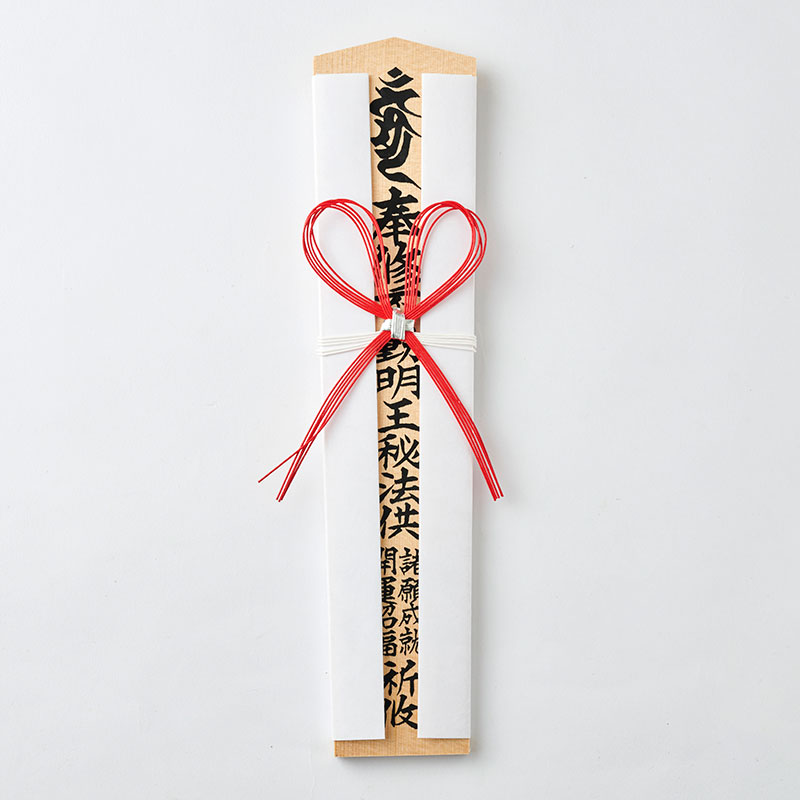 奉修
動明王秘法供
諸願成就
開運招福
祈攸